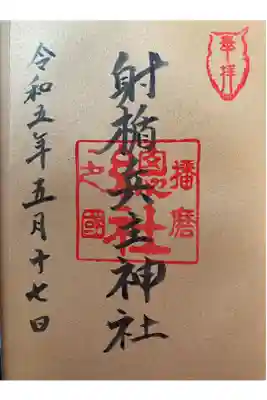 奉拝
射楯兵主神社
播磨
之國
總社
令和五年五月十七日